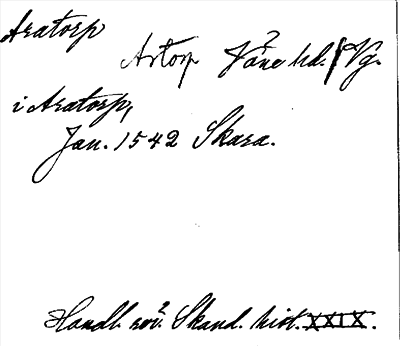 Aratorp
Artorp Våne hd. Vg.
i Aratorp,
Jan. 1542 Skara.
Handl. rör. Skand. hist. XXIX.